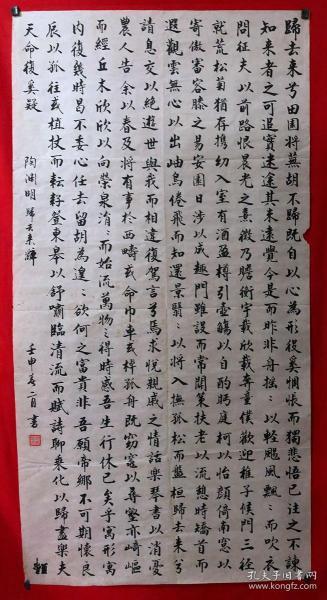 歸去来兮田園將蕪胡不歸既自以心為形役奚惆悵而獨悲悟已注之不諫
知来者之可追實迷途其未遠覺今是而昨非舟摇:以輕颺風飄:而吹衣
問征夫以前路恨晨光之熹微乃瞻衡宇載欣載奔童僕歡迎稚子候門三徑
就荒松菊猶存携幼入室有酒盈樽引壺觴以自酌眄庭柯以怡顔倚南窓以
寄傲審容膝之易安園日涉以成趣門雖設而常關策扶老以流憩時矯首而
遐觀雲無心以出岫鳥倦飛而知還景翳:以將入撫孤松而盤桓歸去来兮
請息交以絶遊世與我而相違復駕言兮焉求悅親戚之情話樂琴書以消憂
農人告余以春及將有事於西疇或命巾車或棹孤舟既窈窕以尋壑亦崎嶇
而經丘木欣欣以向榮泉涓:而始流萬物之得時感吾生行休已矣乎寓形寓
内復幾時曷不委心任去留胡為遑:欲何之富貴非吾願帝鄉不可期懷良
辰以孤往或植杖而耘耔登東皋以舒嘯臨清流而賦詩聊乘化以歸盡樂夫
天命復奚疑 陶淵明歸去来辭
壬申春二月書
孔夫子旧书网